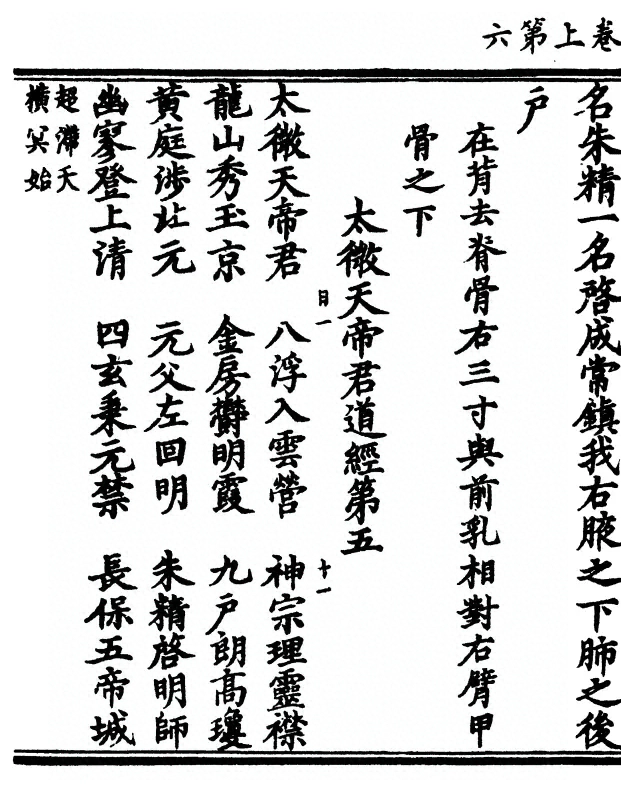 卷上第六
名朱精一名啓成常鎮我右腋之下肺之後
户
在背去脊骨右三寸與前乳相對右臂甲
骨之下
太微天帝君道經第五
日一
十一
太微天帝君 八浮入雲營 神宗理靈襟
龍山秀玉京 金房鬱明霞 九户朗高瓊
黄庭涉北元 元父左回明 朱精啓明師
幽寥登上清 四玄秉元禁 長保五帝城
超滯天
橫冥始